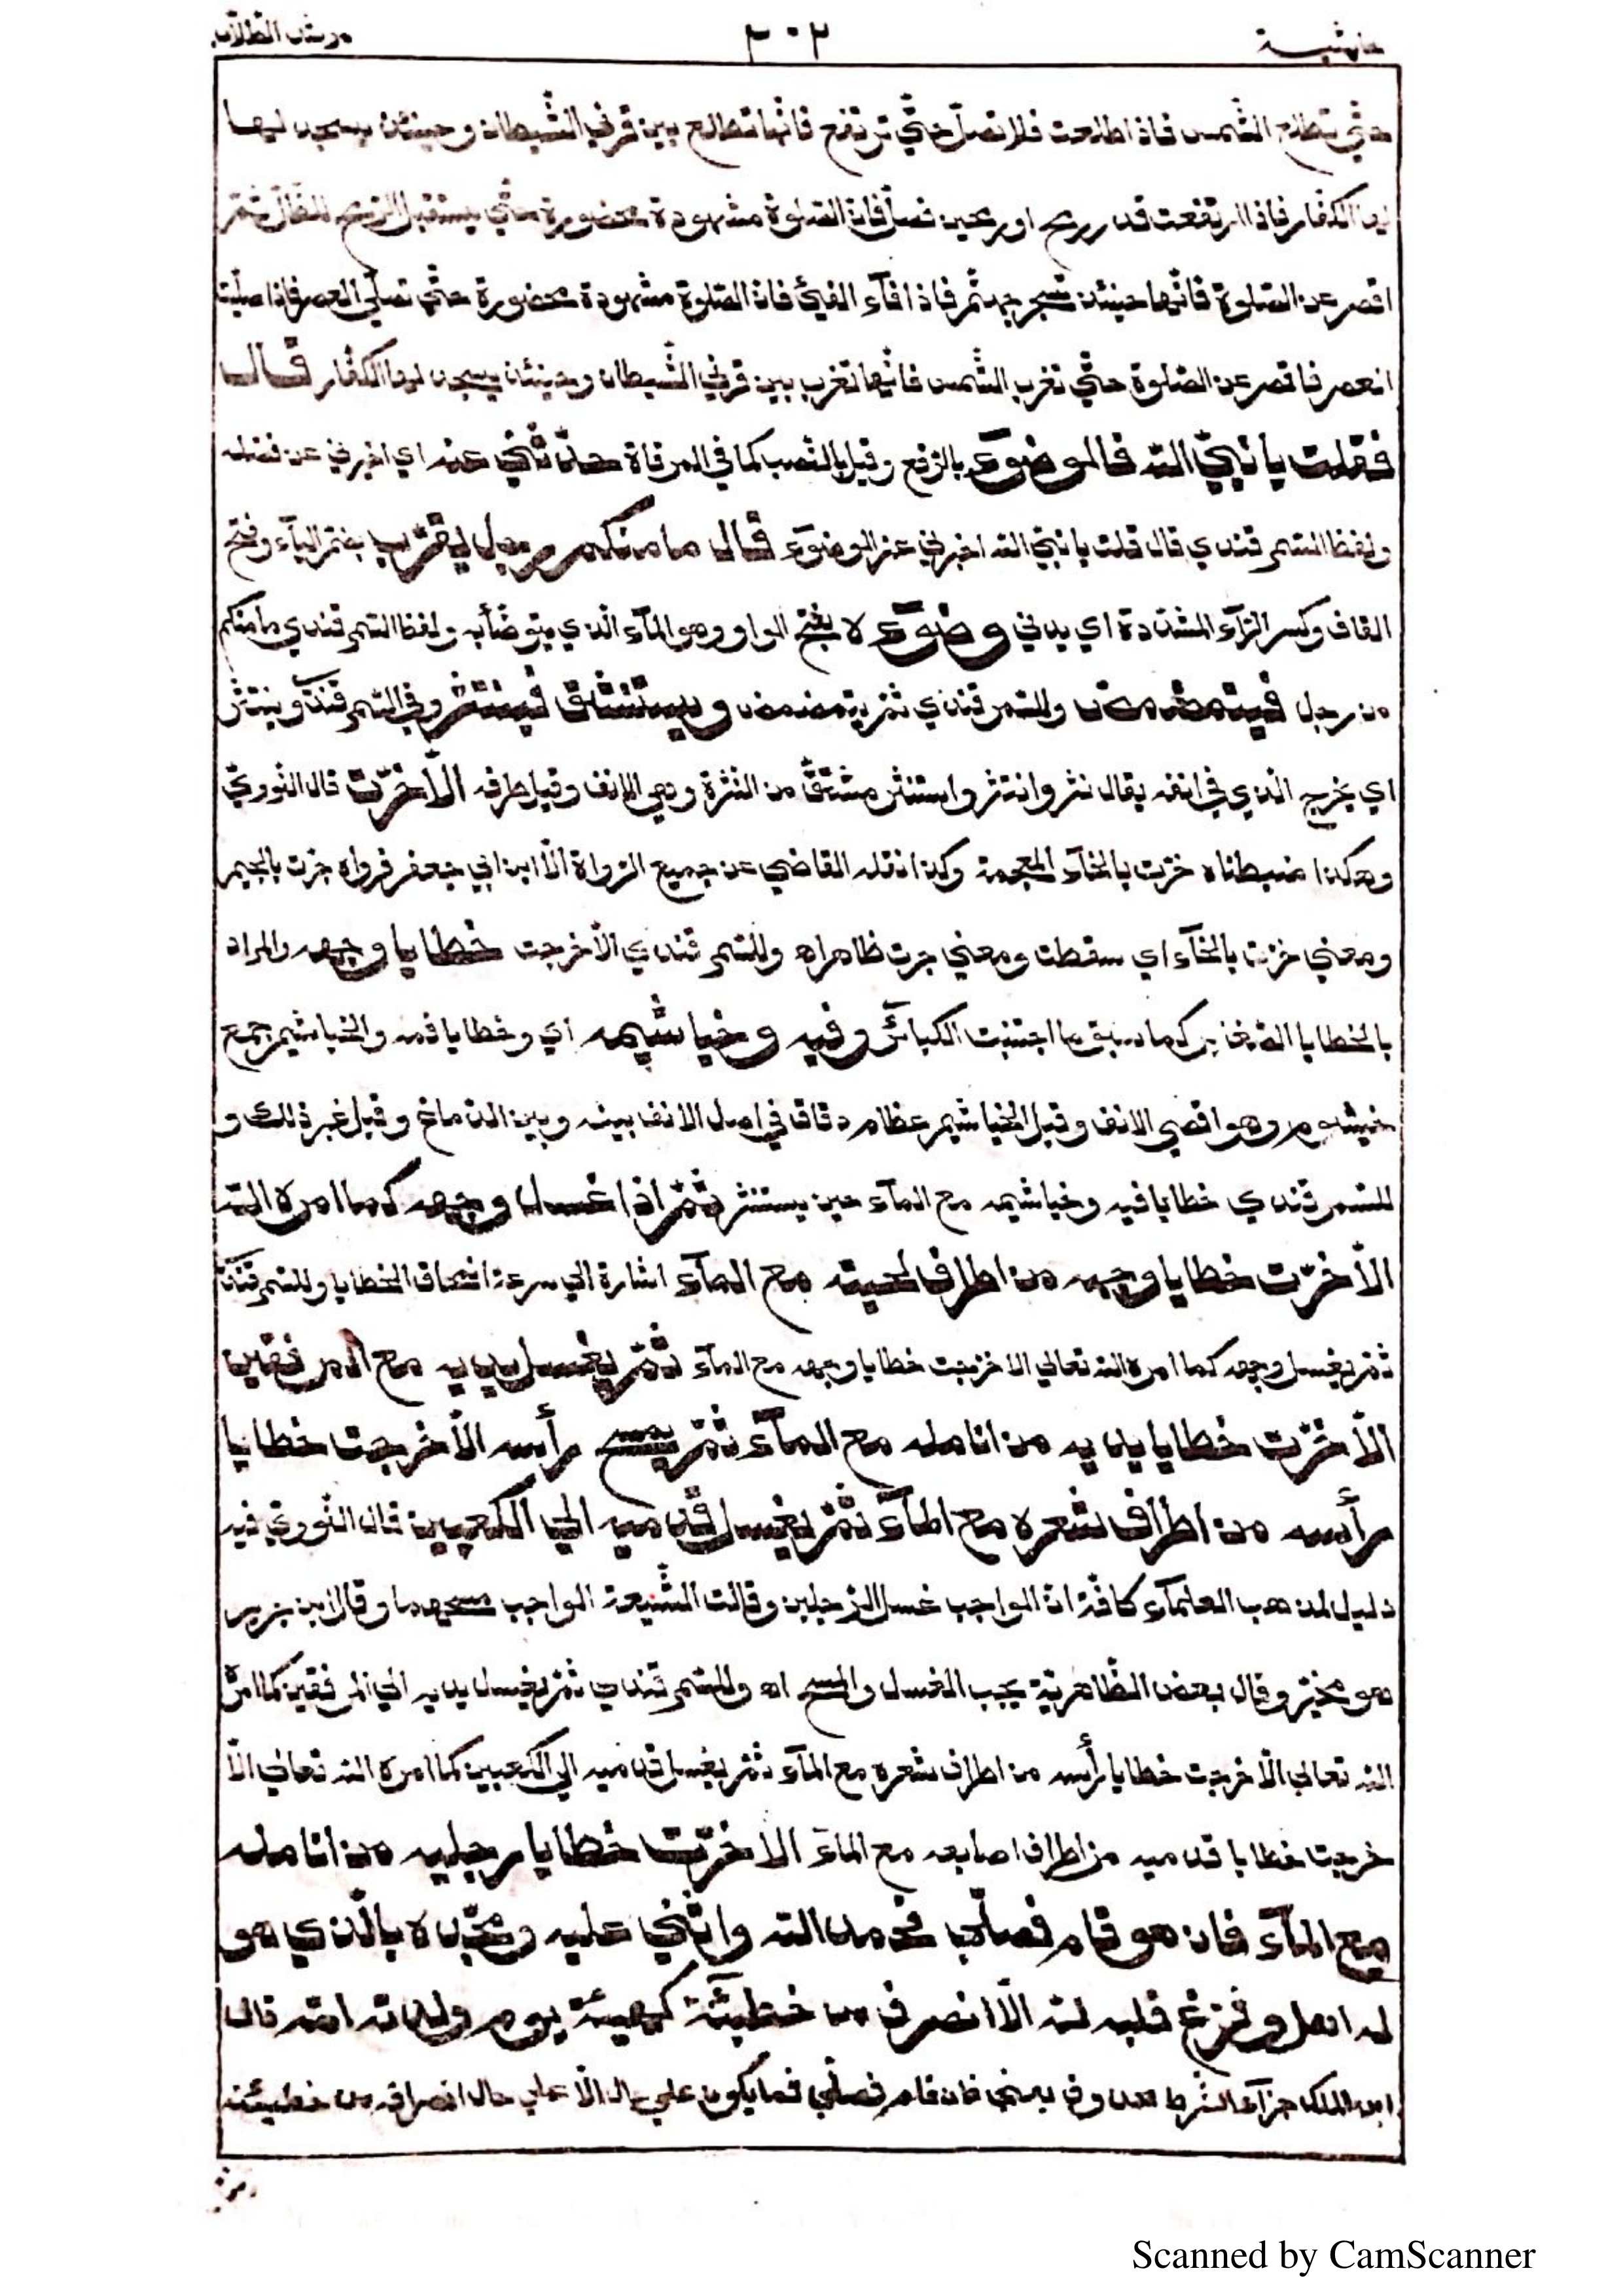 حاشية ٣٠٢ مرشد الطلاب
حتّي تطلع الشّمس فاذا طلعت فلا تصلّ حتّي ترتفع فانّها تطلع بين قرني الشّيطان وحينئذ يسجد لها
لها الكفّار فاذا ارتفعت قدر رمح او رمحين فصلّ فانّ الصّلوة مشهودة محضورة حتّي يستقبل الرّمح الظّلّ ثمّ
اقصر عن الصّلوة فانّها حينئذ تسجر جهنّم فاذا افآء الفيئ فانّ الصّلوة مشهودة محضورة حتّي تصلّي العصر فاذا صلّيت
العصر فاقصر عن الصّلوة حتّي تغرب الشّمس فانّها تغرب بين قرني الشّيطان وحينئذ يسجد لها الكفّار قال
فقلت يا نبيّ الله فالوضوٓء بالرّفع وقيل بالنّصب كما في المرقاة حدّثني عنه اي اخبرني عن فضله
ولفظ السّمرقندي قال قلت يا نبيّ الله اخبرني عن الوضوٓء قال ما منكم رجل يقرّب بضمّ اليآء وفتح
القاف وكسر الرّآء المشدّدة اي يدني وضوٓءه بفتح الواو وهو المآء الّذي يتوضّأ به ولفظ السّمرقندي ما منكم
من رجل فيتمضمض وللسّمرقندي ثمّ يتمضمض ويستنشق فينتثر وفي السّمرقندي وينتثر
اي يخرج الّذي في انفه يقال نثر وانتثر واستنثر مشتقّ من النّثرة وهي الانف وقيل طرفه الّا خرّت قال النّوويّ
وهكذا ضبطناه خرّت بالخآء المعجمة وكذا نقله القاضي عن جميع الرّواة الّا ابن ابي جعفر فرواه جرت بالجيم
ومعني خرّت بالخآء اي سقطت ومعني جرت ظاهر اه وللسّمرقندي الّا خرجت خطايا وجهه والمراد
بالخطايا الصّغاير كما سبق ما اجتنبت الكبآئر وفيه وخياشيمه اي وخطايا فمه والخياشيم جمع
خيشوم وهو اقصي الانف وقيل الخياشيم عظام دقاق في اصل الانف بينه وبين الدماغ وقيل غير ذلك و
للسّمرقندي خطايا فيه وخياشيمه مع المآء حين يستنثر ثمّ اذا غسل وجهه كما امره الله
الّا خرّت خطايا وجهه من اطراف لحيته مع المآء اشارة الي سرعة امتحاق الخطايا وللسّمرقندي
ثمّ يغسل وجهه كما امره الله تعالي الا خرجت خطايا وجهه مع المآء ثمّ يغسل يديه مع المرفقين
الّا خرّت خطايا يديه من انامله مع المآء ثمّ يمسح رأسه الّا خرجت خطايا
رأسه من اطراف شعره مع المآء ثمّ يغسل قدميه الي الكعبين قال النّوويّ فيه
دليل لمذهب العلمآء كافّة انّ الواجب غسل الرّجلين وقالت الشّيعة الواجب مسحهما وقال ابن جرير
هو مخيّر وقال بعض الظّاهريّة يجب الغسل والمسح اه وللسّمرقندي ثمّ يغسل يديه الي المرفقين كما امره
الله تعالي الّا خرجت خطايا رأسه من اطراف شعره مع المآء ثمّ يغسل قدميه الي الكعبين كما امره الله تعالي الّا
خرجت خطايا قدميه من اطراف اصابعه مع المآء الا خرّت خطايا رجليه من انامله
مع المآء فان هو قام فصلّي فحمد الله واثني عليه ومجّده بالّذي هو
له اهل وفرّغ قلبه لله الّا انصرف من خطيئته كهيئة يوم ولدته امّه قال
ابن الملك جزآء الشّرط محذوف يعني فان قام فصلّي فما يكون علي حال الّا علي حال انصرافه من خطيئته